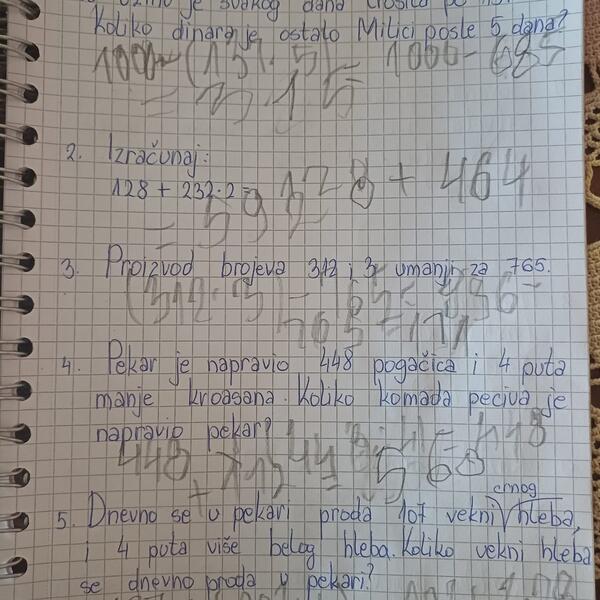 svakog dana
Koliko dinara je ostalo Milici posle 5 dana?
1000-(137·5)= 1000-685
=315
2. Izračunaj:
128 + 232·2= 128+464
=592
3. Proizvod brojeva 312 i 3 umanji za 765.
(312·3)-765=936-
765=171
4. Pekar je napravio 448 pogačica i 4 puta
manje kroasana. Koliko komada peciva je
napravio pekar?
448
+112 =560
crnog
5. Dnevno se u pekari proda 107 vekni hleba,
i 4 puta više belog hleba. Koliko vekni hleba
se dnevno proda u pekari?